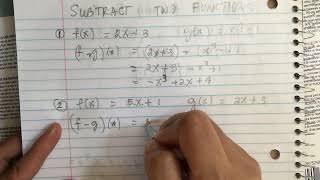 SUBTRACT TWO FUNCTIONS
① f(x) = 2x+3 g(x) = x³-1
(f-g)(x) = (2x+3) - (x³-1)
= 2x+3 - x³+1
= -x³+2x+4
② f(x) = 5x+1 g(x) = 2x+3
(f-g)(x) =